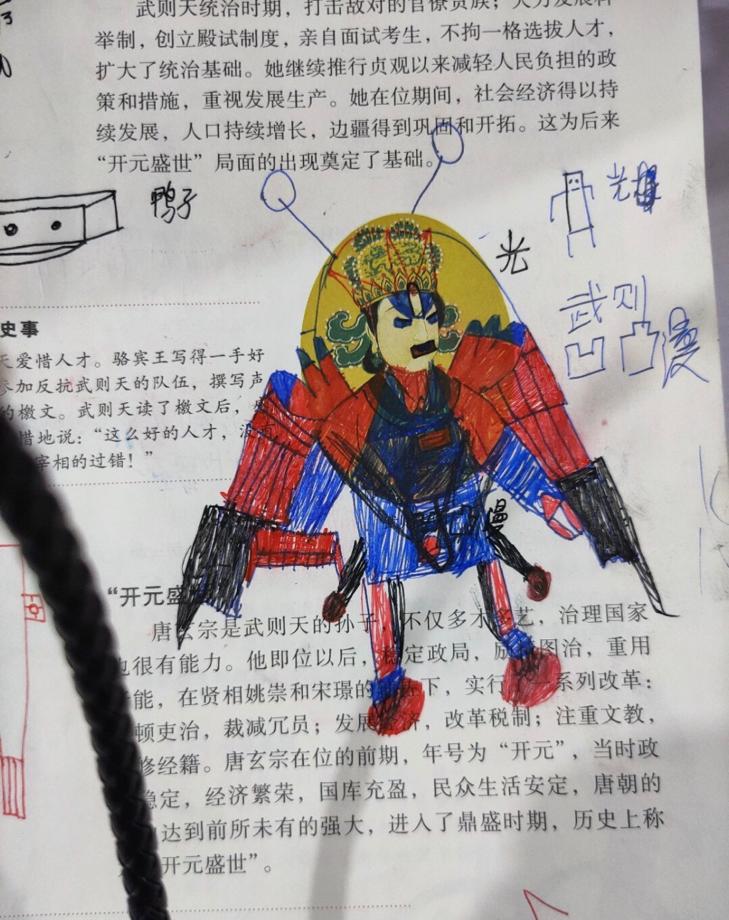 武则天统治时期，打击敌对的官僚贵族；大力发展科
举制，创立殿试制度，亲自面试考生，不拘一格选拔人才，
扩大了统治基础。她继续推行贞观以来减轻人民负担的政
策和措施，重视发展生产。她在位期间，社会经济得以持
续发展，人口持续增长，边疆得到巩固和开拓。这为后来
“开元盛世”局面的出现奠定了基础。
鸭子
光
光
武则
凹凸漫
史事
天爱惜人才。骆宾王写得一手好
参加反抗武则天的队伍，撰写声
的檄文。武则天读了檄文后，
惜地说：“这么好的人才，没
宰相的过错！”
漫
“开元盛
唐玄宗是武则天的孙子，不仅多才多艺，治理国家
也很有能力。他即位以后，稳定政局，励精图治，重用
能，在贤相姚崇和宋璟的下，实行一系列改革：
顿吏治，裁减冗员；发展经济，改革税制；注重文教，
修经籍。唐玄宗在位的前期，年号为“开元”，当时政
稳定，经济繁荣，国库充盈，民众生活安定，唐朝的
达到前所未有的强大，进入了鼎盛时期，历史上称
“开元盛世”。